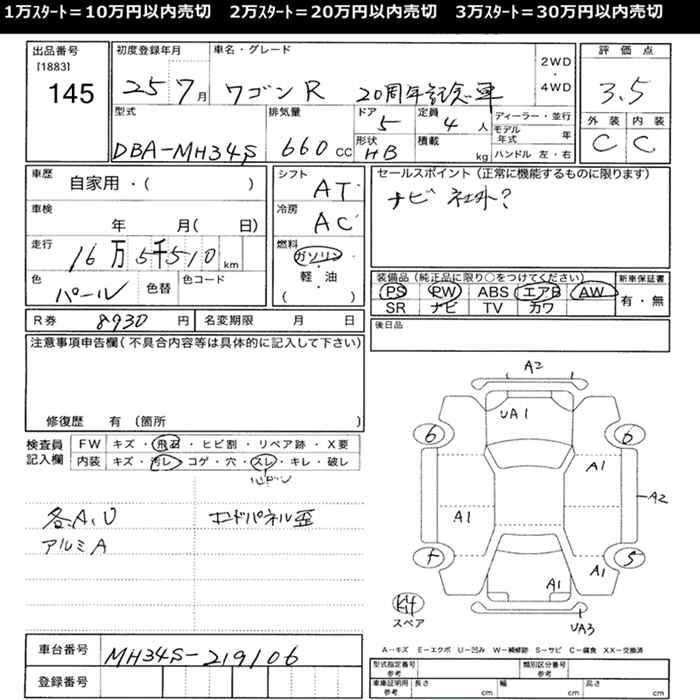 1万ｽﾀｰﾄ＝10万円以内売切　2万ｽﾀｰﾄ＝20万円以内売切　3万ｽﾀｰﾄ＝30万円以内売切
出品番号
[1883]
145
初度登録年月
25 7月
車名・グレード
ワゴンR 20周年記念車
2WD
・
4WD
評価点
3.5
外装 内装
C C
型式
DBA-MH34S
排気量
660 CC
ドア
5
形状
HB
定員
4 人
積載
kg
ディーラー・並行
モデル年式 年
ハンドル 左・右
車歴
自家用・( )
車検
年 月( 日)
走行
16万5千510 km
色
パール
色替
色コード
シフト
AT
冷房
AC
燃料
ガソリン
・
軽・油
( )
セールスポイント (正常に機能するものに限ります)
ナビ 社外?
装備品 (純正品に限り○をつけてください)
PS PW ABS エアB AW
SR ナビ TV カワ
新車保証書
有・無
R券 8930 円
名変期限 月 日
後日品
注意事項申告欄(不具合内容等は具体的に記入して下さい)
修復歴 有 (箇所 )
検査員
記入欄
FW キズ・飛石・ヒビ割・リペア跡・X要
内装 キズ・汚レ・コゲ・穴・スレ・キレ・破レ
各A、U
アルミA
エンドパネル歪
A2
UA1
6 6
A1
A2
A1
7 5
A1
A1
スペア
UA3
A－キズ E－エクボ U－凹み W－補修跡 S－サビ C－腐食 XX－交換済
車台番号
MH34S-219106
登録番号
型式指定番号
参考
類別区分番号
参考
車庫証明用
参考
長さ cm 幅 cm 高さ cm